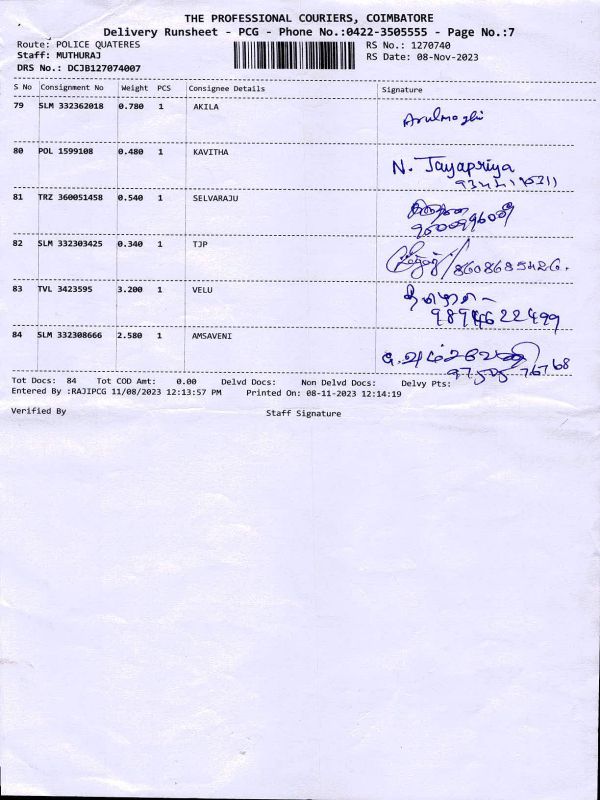 THE PROFESSIONAL COURIERS, COIMBATORE
Delivery Runsheet - PCG - Phone No.:0422-3505555 - Page No.:7
Route: POLICE QUATERES RS No.: 1270740
Staff: MUTHURAJ RS Date: 08-Nov-2023
DRS No.: DCJB127074007
S No Consignment No Weight PCS Consignee Details Signature
79 SLM 332362018 0.780 1 AKILA
Arulmoghi
80 POL 1599108 0.480 1 KAVITHA
N. Jayapriya
81 TRZ 360051458 0.540 1 SELVARAJU
82 SLM 332303425 0.340 1 TJP
8608685426.
83 TVL 3423595 3.200 1 VELU
9894622499
84 SLM 332308666 2.580 1 AMSAVENI
Tot Docs: 84 Tot COD Amt: 0.00 Delvd Docs: Non Delvd Docs: Delvy Pts:
Entered By :RAJIPCG 11/08/2023 12:13:57 PM Printed On: 08-11-2023 12:14:19
Verified By Staff Signature